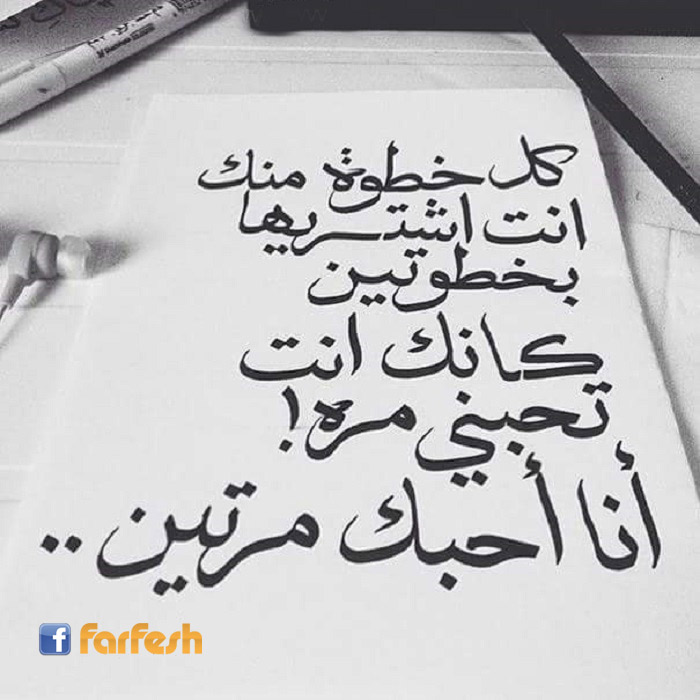 كل خطوة منك
انت اشتريها
بخطوتين
كانك انت
تحبني مره!
أنا أحبك مرتين ..
f farfesh